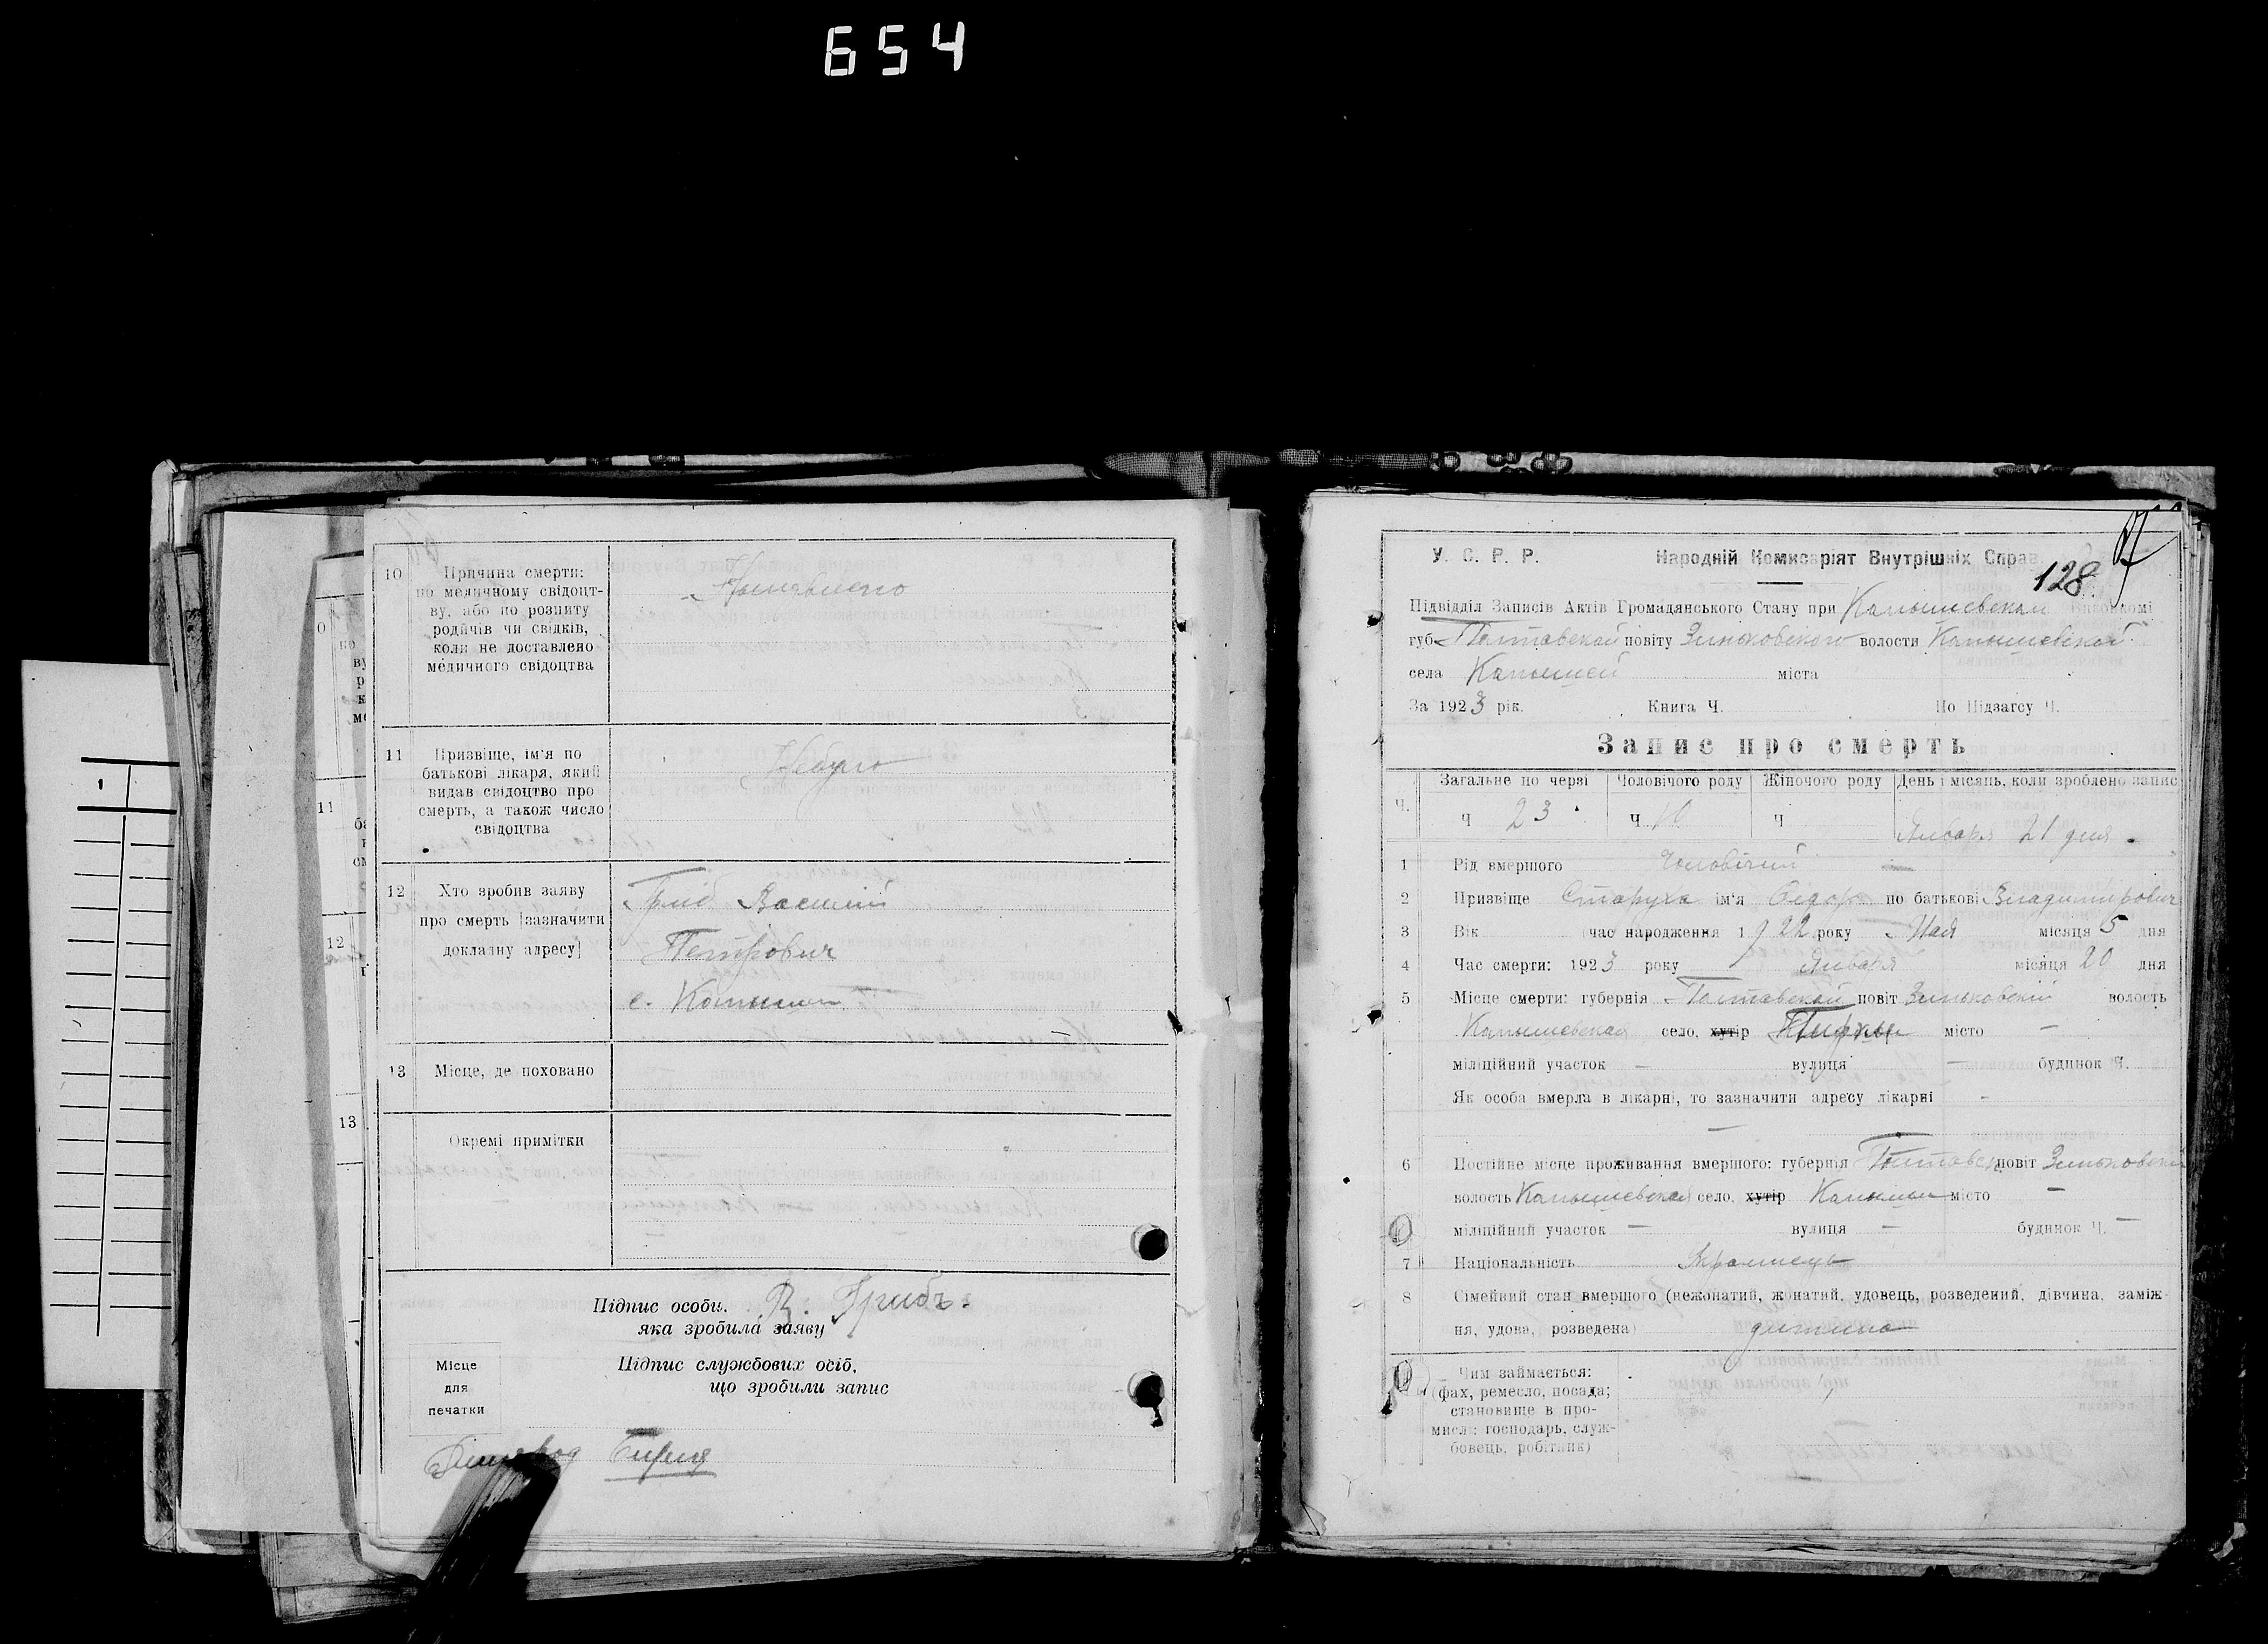 654
10
Причина смерти:
по медичному свідоцт-
ву, або по розпиту
родичів чи свідків,
коли не доставлено
медичного свідоцтва
11
Призвіще, ім'я по
батькові лікаря, який
видав свідоцтво про
смерть, а також число
свідоцтва
12
Хто зробив заяву
про смерть [зазначити
докладну адресу]
Гриб Василій
Петрович
с. Капыши
13
Місце, де поховано
Окремі примітки
Підпис особи,
яка зробила заяву
В. Грибъ.
Місце
для
печатки
Підпис службових осіб,
що зробили запис
128
У. С. Р. Р. Народній Комисаріят Внутрішніх Справ
Підвідділ Записів Актів Громадянського Стану при Капышевском Виконкомі
губ. Полтавской повіту Зиньковского волости Капышевской
села Капышей міста
За 1923 рік. Книга Ч. По Підзагсу Ч.
Запис про смерть
Ч. Загальне по черзі Чоловічого роду Жіночого роду День і місяць, коли зроблено запис
Ч 23 Ч 10 Ч Января 21 дня
1 Рід вмершого Чоловічий
2 Призвіще Старуха ім'я Федор по батькові Владимирович
3 Вік (час народження 1922 року Мая місяця 5 дня
4 Час смерти: 1923 року Января місяця 20 дня
5 Місце смерти: губернія Полтавской повіт Зиньковский волость
Капышевская село, хутір місто —
міліційний участок — вулиця — будинок Ч.
Як особа вмерла в лікарні, то зазначити адресу лікарні -
—
6 Постійне місце проживання вмершого: губернія повіт
волость Капышевская село, хутір Капыши місто —
міліційний участок — вулиця — будинок Ч. —
7 Національність Украинець
8 Сімейний стан вмершого (нежонатий, жонатий, удовець, розведений, дівчина, заміж-
ня, удова, розведена) дитина
Чим займається:
(фах, ремесло, посада;
становище в про-
мислі: господарь, служ-
бовець, робітник)